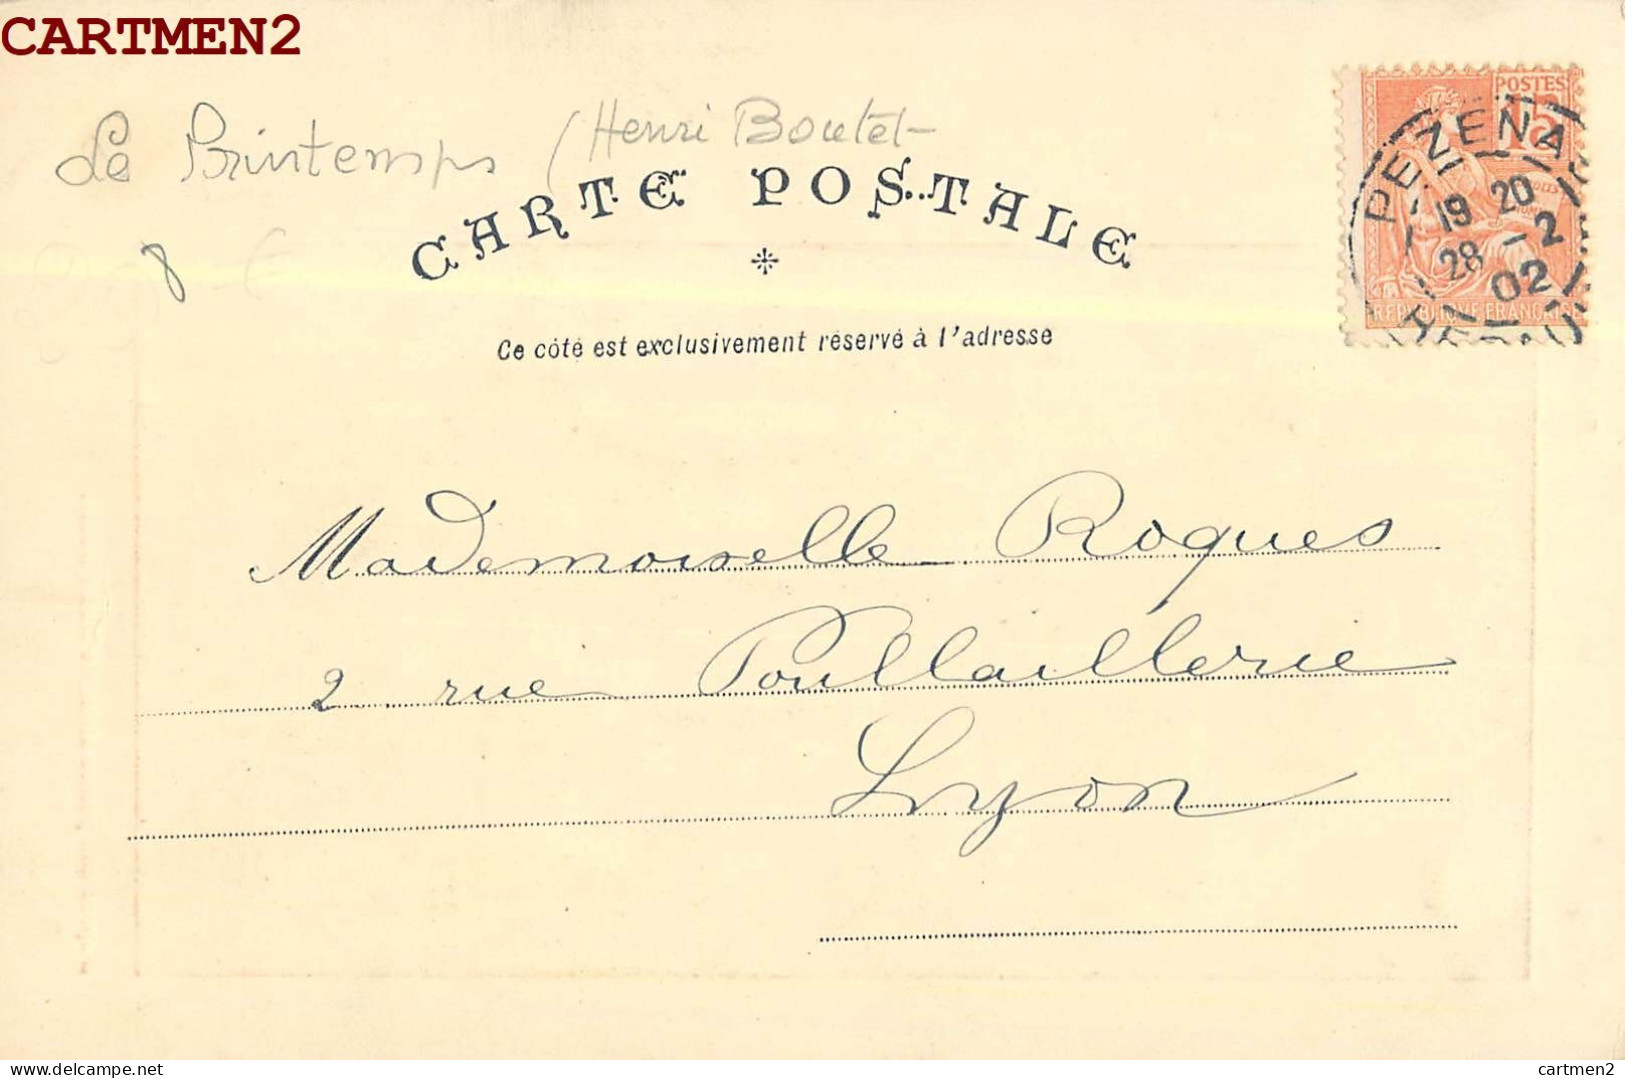 CARTMEN2
Le Printemps (Henri Boutet-
CARTE POSTALE
Ce côté est exclusivement réservé à l'adresse
POSTES
15
PEZENA
19 20
28 -2
02
HERAU
REPUBLIQUE FRANÇAISE
8 €
Mademoiselle Roques
2 rue Poullaillerie
Lyon
delcampe.net
cartmen2